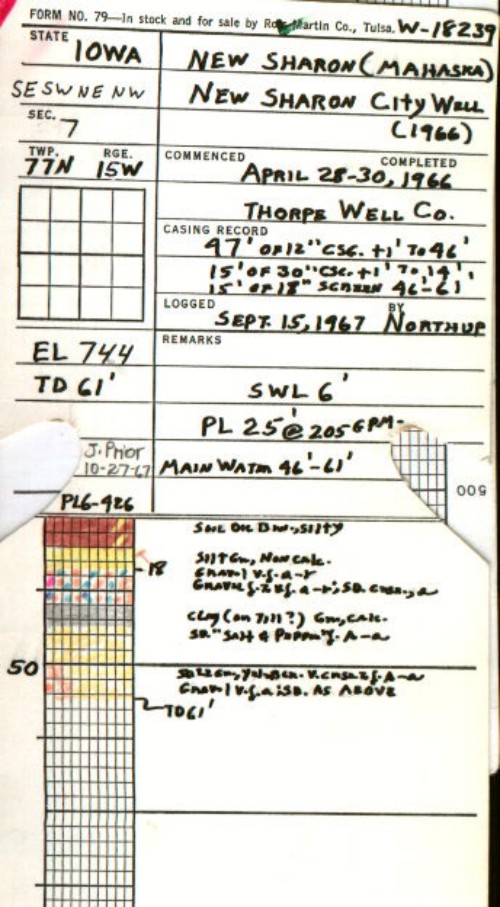 FORM NO. 79—In stock and for sale by Ross-Martin Co., Tulsa. W-18239
STATE
IOWA
NEW SHARON (MAHASKA)
SE SW NE NW
NEW SHARON CITY WELL
SEC. 7
(1966)
TWP. RGE.
77N 15W
COMMENCED COMPLETED
APRIL 28-30, 1966
THORPE WELL CO.
CASING RECORD
47' OF 12" CSG. +1' TO 46'
15' OF 30" CSG. +1' TO 14',
15' OF 18" SCREEN 46'-61
LOGGED BY
SEPT. 15, 1967 NORTHUP
EL 744
REMARKS
TD 61'
SWL 6'
PL 25' @ 205 GPM-
J. Prior
10-27-67
MAIN WATER 46'-61'
PLG-426
009
SOIL OL BRN, SILTY
SILT GRN, NON CALC.
18
GRAVEL V.f. a-r
GRAVEL f. & V.f. a-r; SD. CRSE., a
CLAY (OR TILL?) GRN, CALC.
SD. "SALT & PEPPER" f. A-a
50
GRAVEL V.f. a; SD. AS ABOVE
TD 61'